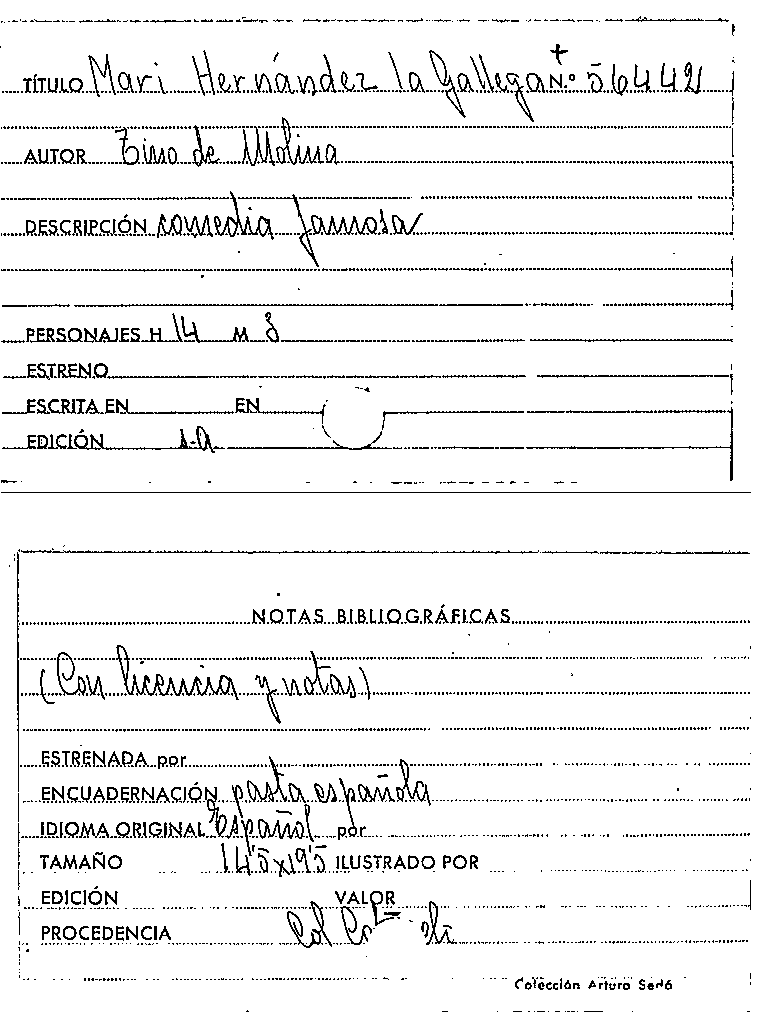 TÍTULO Mari Hernández la Gallega N.º 56442
AUTOR Tirso de Molina
DESCRIPCIÓN comedia famosa
PERSONAJES H 14 M 3
ESTRENO
ESCRITA EN EN
EDICIÓN s.a
NOTAS BIBLIOGRÁFICAS
(Con licencia y notas)
ESTRENADA por
ENCUADERNACIÓN pasta española
IDIOMA ORIGINAL Español por
TAMAÑO 14'5x19'5 ILUSTRADO POR
EDICIÓN VALOR
PROCEDENCIA Col
Colección Arturo Sedó